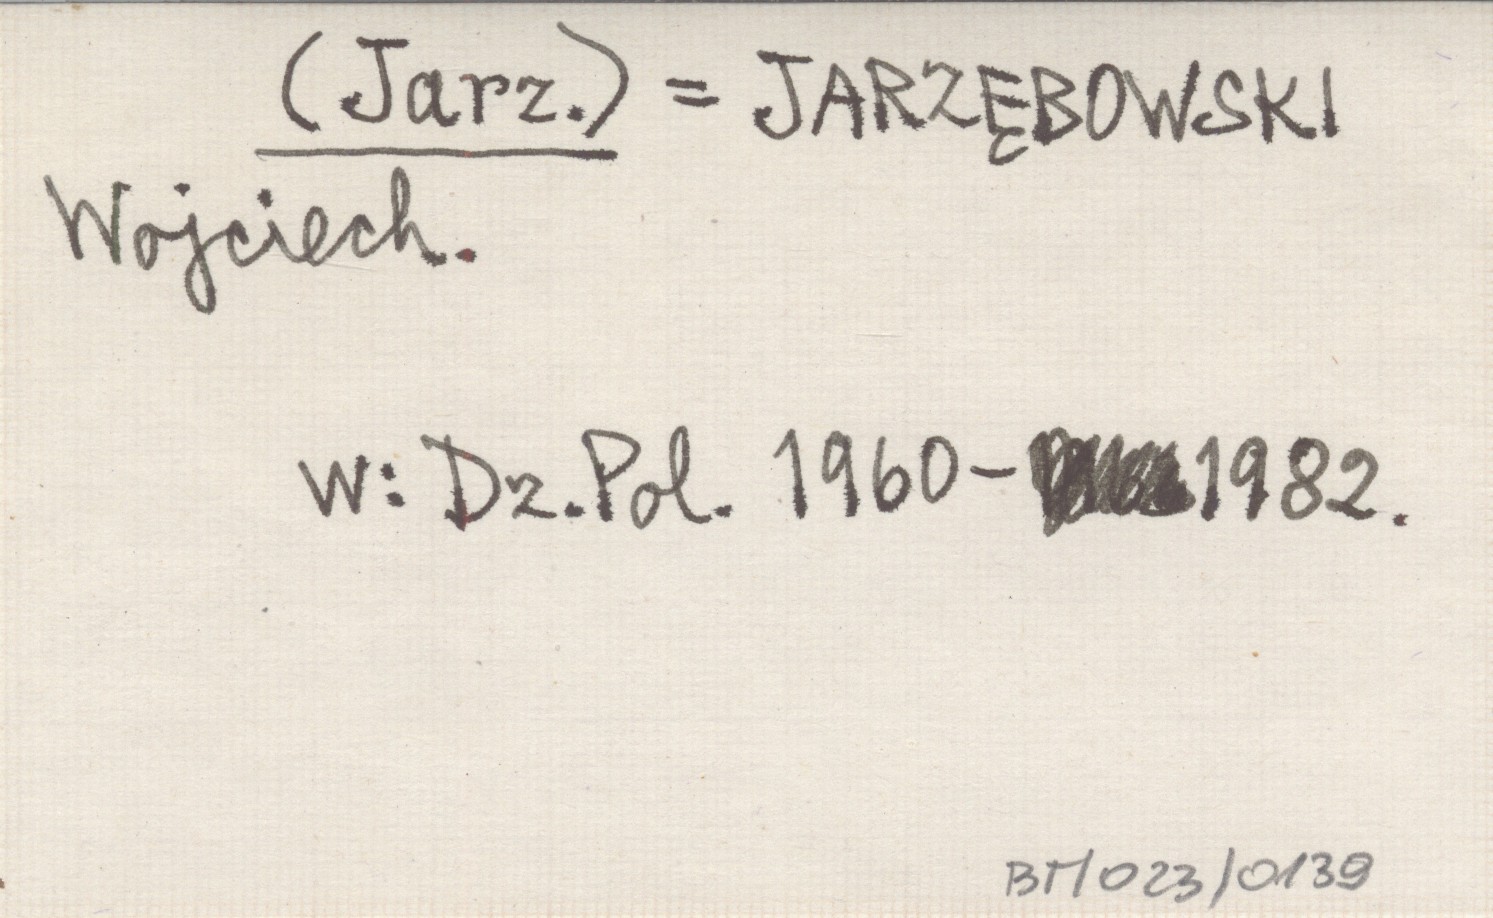 (Jarz.) = JARZĘBOWSKI
Wojciech.
w: Dz. Pol. 1960- 1982.
BM/023/0139